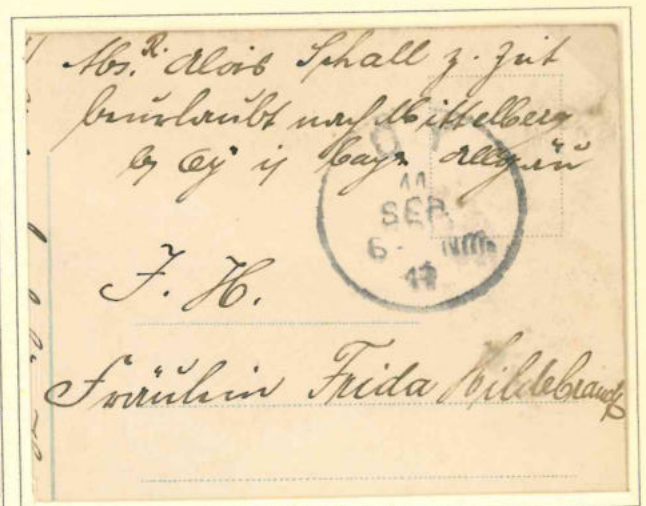 Abs. R. Alois Schall z. Zeit
beurlaubt nach Mittelberg
b/ Oy i/ bayr. Allgäu
OY
11
SEP.
6- Nm.
17
F. H.
Fräulein Frida Hildebrandt